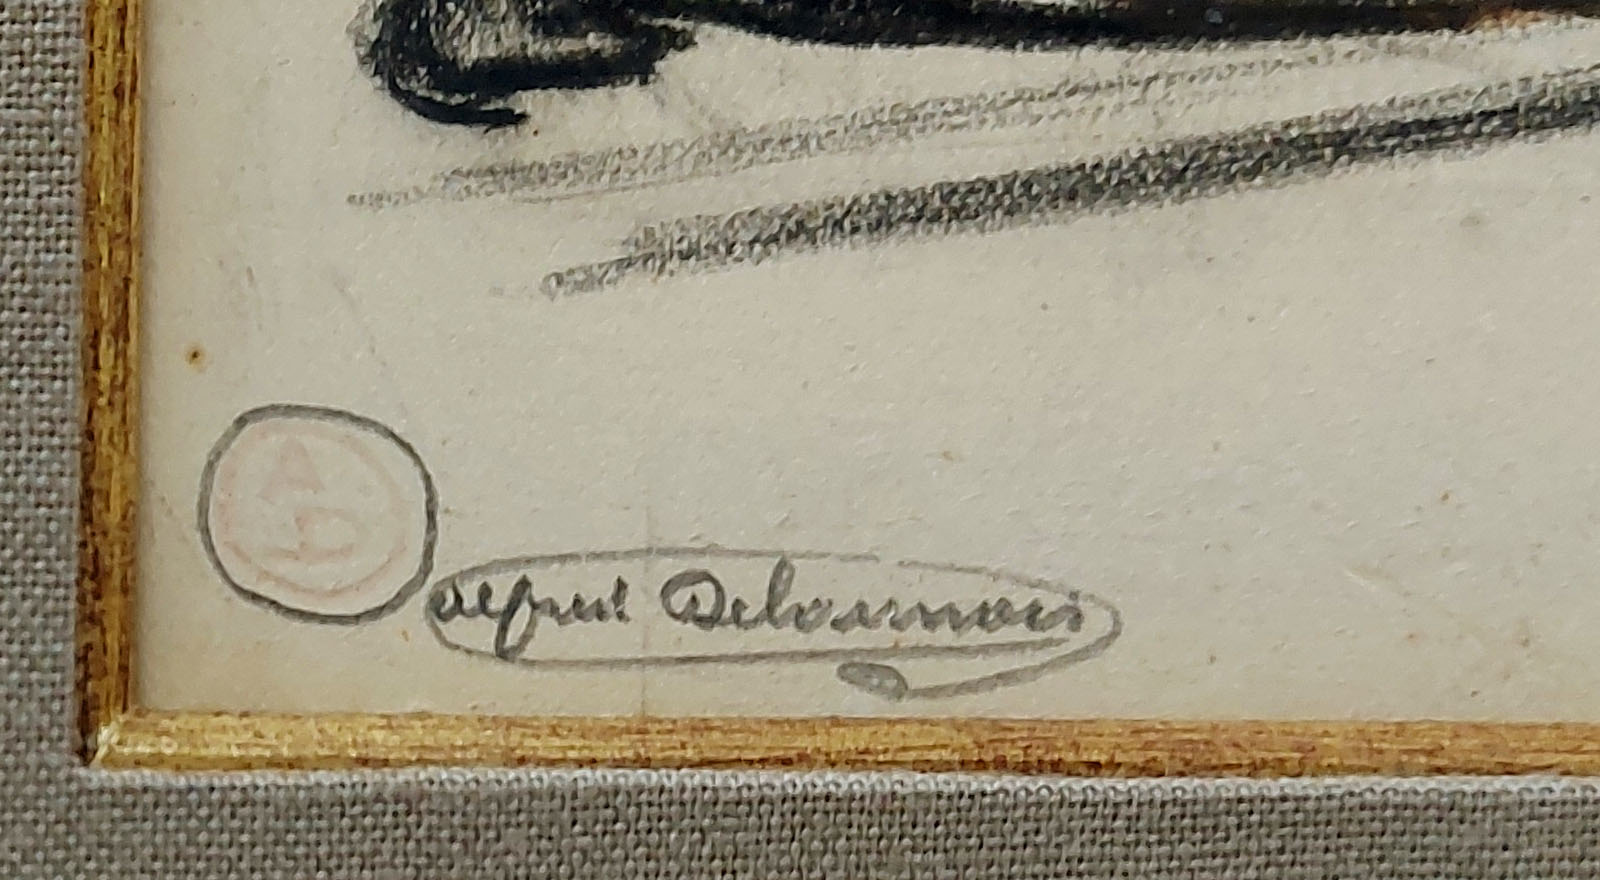 A
D
Alfred Delaunois